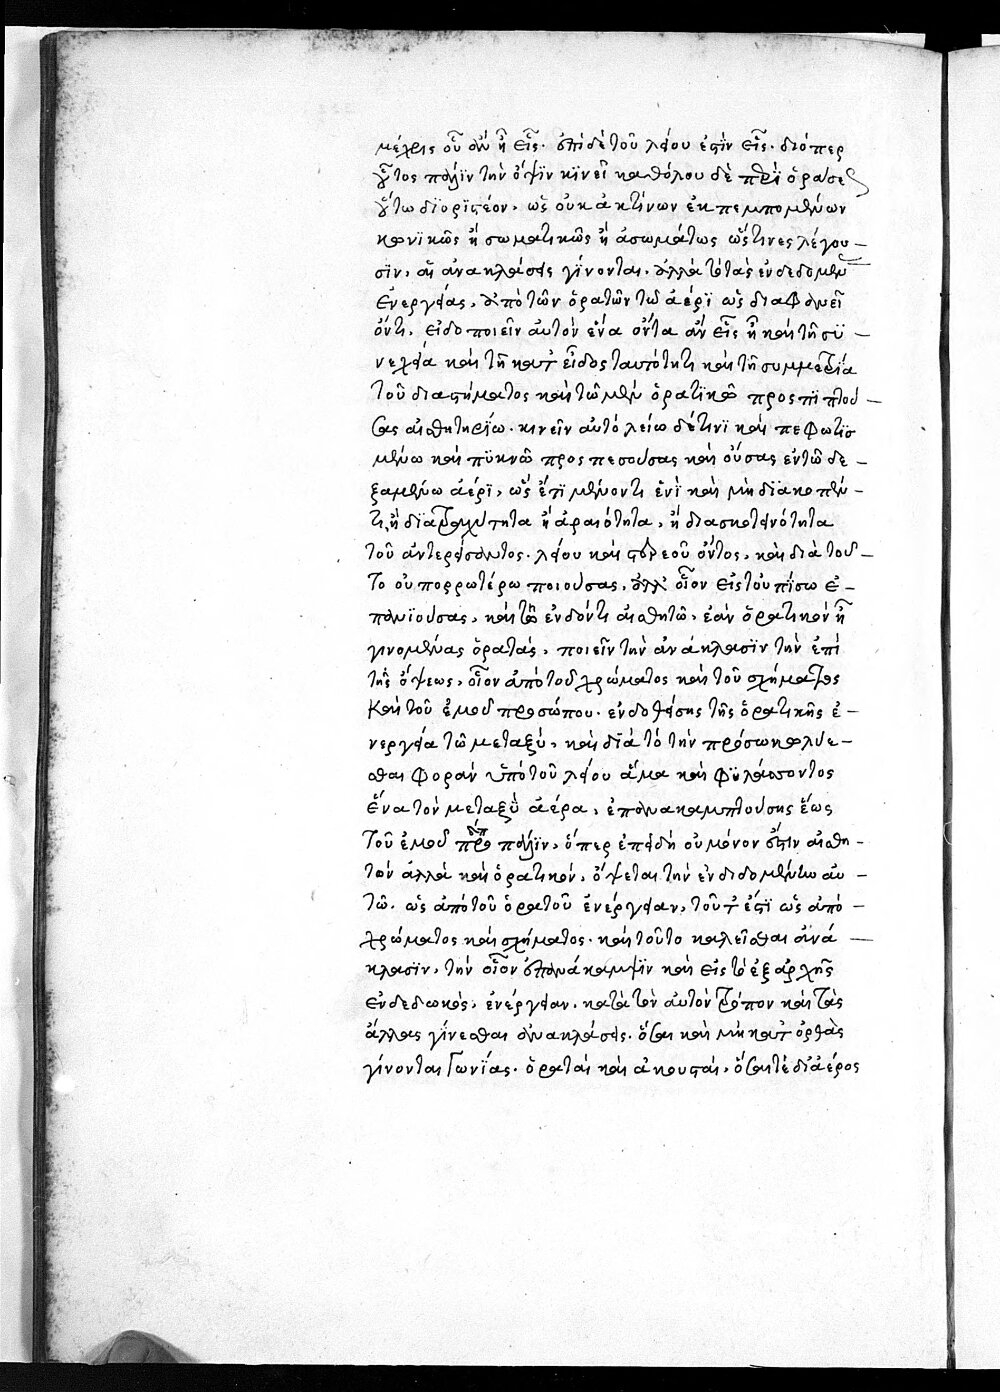 μέχρις οὗ ἂν ᾖ εἷς. ἐπὶ δὲ τοῦ λείου ἐστὶν εἷς. διόπερ
οὗτος πάλιν τὴν ὄψιν κινεῖ καθόλου δὲ περὶ ὁράσεως
οὕτω διοριστέον, ὡς οὐκ ἀκτίνων ἐκπεμπομένων
κωνικῶς ἢ σωματικῶς ἢ ἀσωμάτως ὥς τινες λέγου –
σιν, αἱ ἀνακλάσεις γίνονται. ἀλλὰ τὸ τὰς ἐνδεδομένας
ἐνεργείας, ἀπὸ τῶν ὁρατῶν τῶ ἀέρι ὡς διαφανεῖ
ὄντι, εἰδοποιεῖν αὐτὸν ἕνα ὄντα ἂν εἷς ᾖ καὶ τῆ συ –
νεχεία καὶ τῆ κατ' εἶδος ταυτότητι καὶ τῆ συμμετρία
τοῦ διαστήματος καὶ τῶ μὲν ὁρατικῶ προσπιπτού –
σας αἰσθητηρίω. κινεῖν αὐτό. λείω δέ τινι καὶ πεφωτισ
μένω καὶ πυκνῶ προσπεσούσας καὶ οὔσας ἐν τῶ δε –
ξαμένω ἀέρι, ὡς ἐπιμένοντι ἑνὶ καὶ μὴ διακοπέν –
τι ἢ διὰ τραχύτητα ἢ ἀραιότητα, ἢ διὰ σκοτεινότητα
τοῦ ἀντερείσαντος. λείου καὶ στερεοῦ ὄντος, καὶ διὰ τοῦ –
το οὐ πορρωτέρω ποιούσας, ἀλλ' οἷον εἰς τοὐπίσω ἐ –
πανιούσας, καὶ τῶ ἐνδόντι αἰσθητῶ, ἐὰν ὁρατικὸν ᾖ
γινομένας ὁρατάς, ποιεῖν τὴν ἀνάκλασιν τὴν ἐπὶ
τῆς ὄψεως, οἷον ἀπὸ τοῦ χρώματος καὶ τοῦ σχήματος
καὶ τοῦ ἐμοῦ προσώπου. ἐνδοθείσης τῆς ὁρατικῆς ἐ –
νεργεία τῶ μεταξύ, καὶ διὰ τὸ τὴν πρόσω κωλύε –
σθαι φορὰν ὑπὸ τοῦ λείου ἅμα καὶ φυλάσσοντος
ἕνα τὸν μεταξὺ ἀέρα, ἐπανακαμπτούσης ἕως
τοῦ ἐμοῦ πάλιν, ὅπερ ἐπειδὴ οὐ μόνον ἐστὶν αἰσθη –
τὸν ἀλλὰ καὶ ὁρατικόν, ὄψεται τὴν ἐνδιδομένην αὐ –
τῶ. ὡς ἀπὸ τοῦ ὁρατοῦ ἐνέργειαν, τοῦτ' ἔστι ὡς ἀπὸ –
χρώματος καὶ σχήματος. καὶ τοῦτο καλεῖσθαι ἀνά –
κλασιν, τὴν οἷον ἐπανάκαμψιν καὶ εἰς τὸ ἐξ ἀρχῆς
ἐνδεδωκὸς, ἐνέργειαν. κατὰ τὸν αὐτὸν τρόπον καὶ τὰς
ἄλλας γίνεσθαι ἀνακλάσεις. ὅσαι καὶ μὴ κατ' ὀρθὰς
γίνονται γωνίας. ὁραταὶ καὶ ἀκουσταί, ὅσαι τὲ δι' ἀέρος